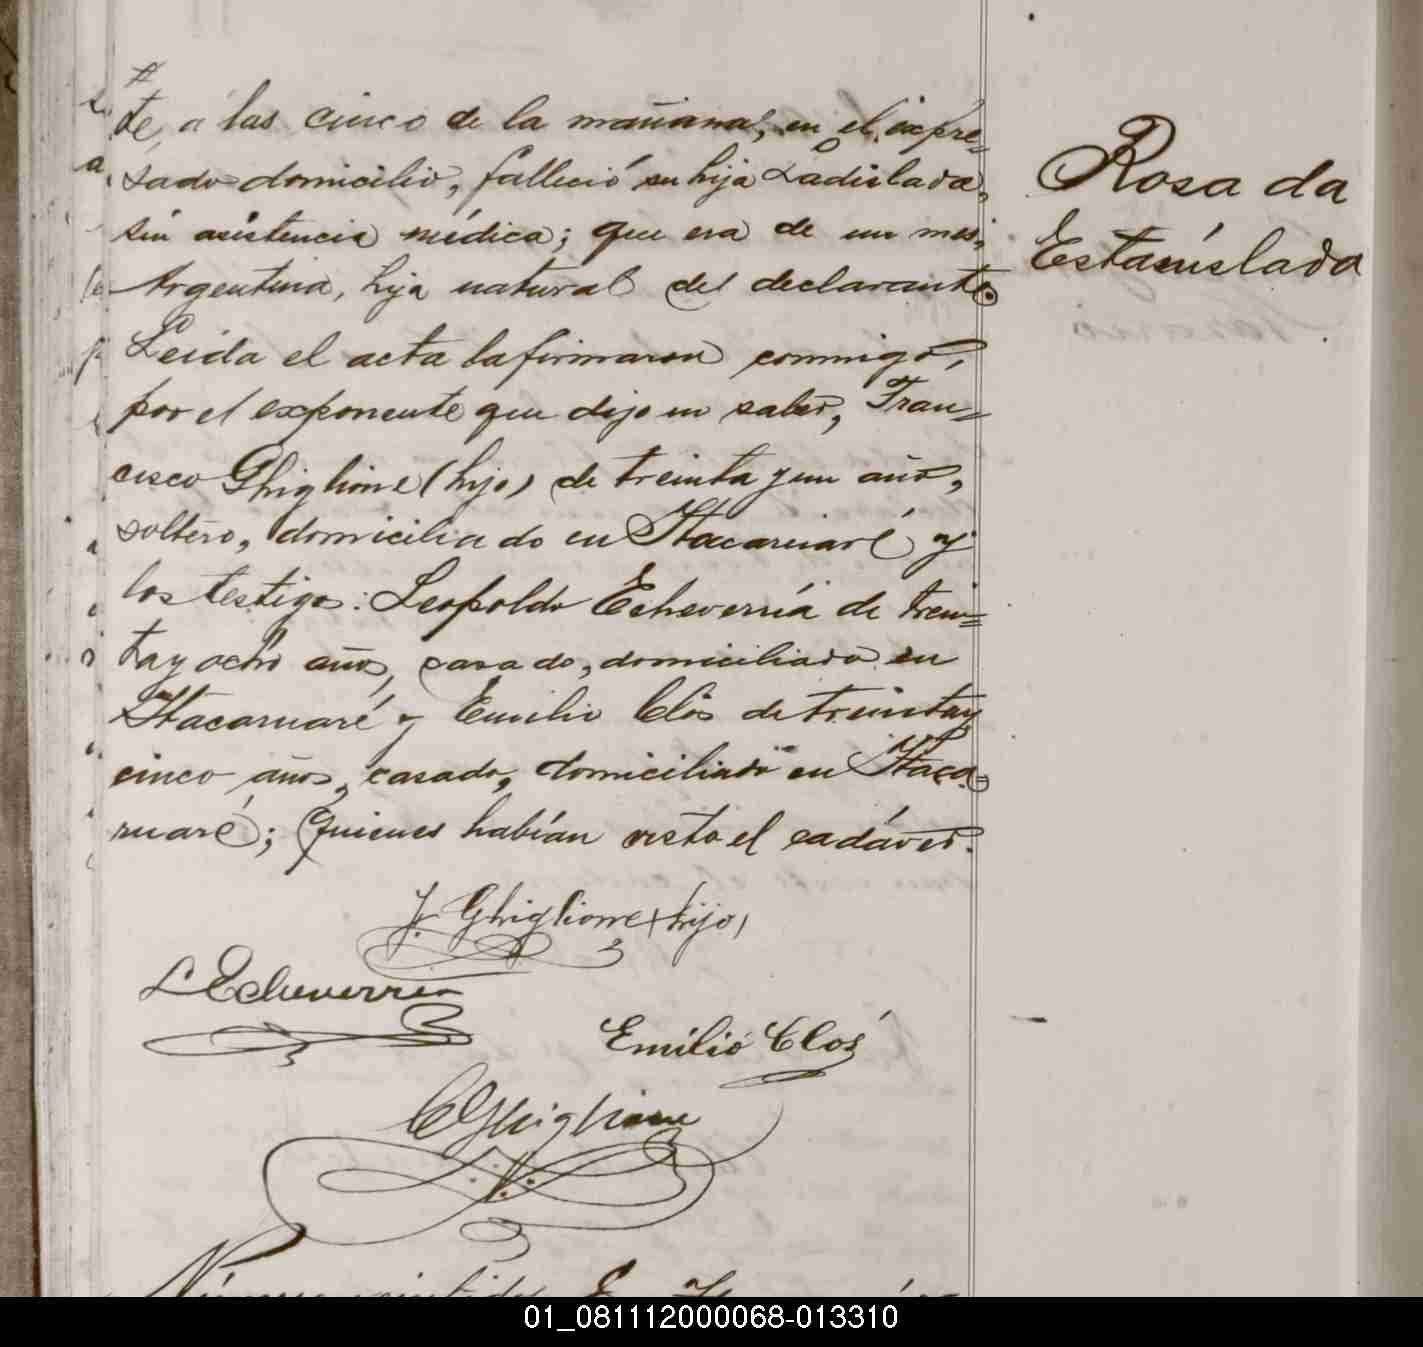 te, a las cinco de la mañana, en el expre=
sado domicilio, falleció su hija Ladislada,
sin asistencia médica; que era de un mes,
Argentina, hija natural del declarante.
Leida el acta la firmaron conmigo,
por el exponente que dijo no saber, Fran=
cisco Ghiglione (hijo) de treinta y un años,
soltero, domiciliado en Itacaruaré y
los testigos: Leopoldo Echeverría de trein=
ta y ocho años, casado, domiciliado en
Itacaruaré y Emilio Clós de treinta y
cinco años, casado, domiciliado en Itaca=
ruaré; quienes habían visto el cadáver.
F. Ghiglione (hijo)
L Echeverria
Emilio Clós
C Ghiglione
Número veintidos
Rosa da
Estanislada
01_081112000068-013310